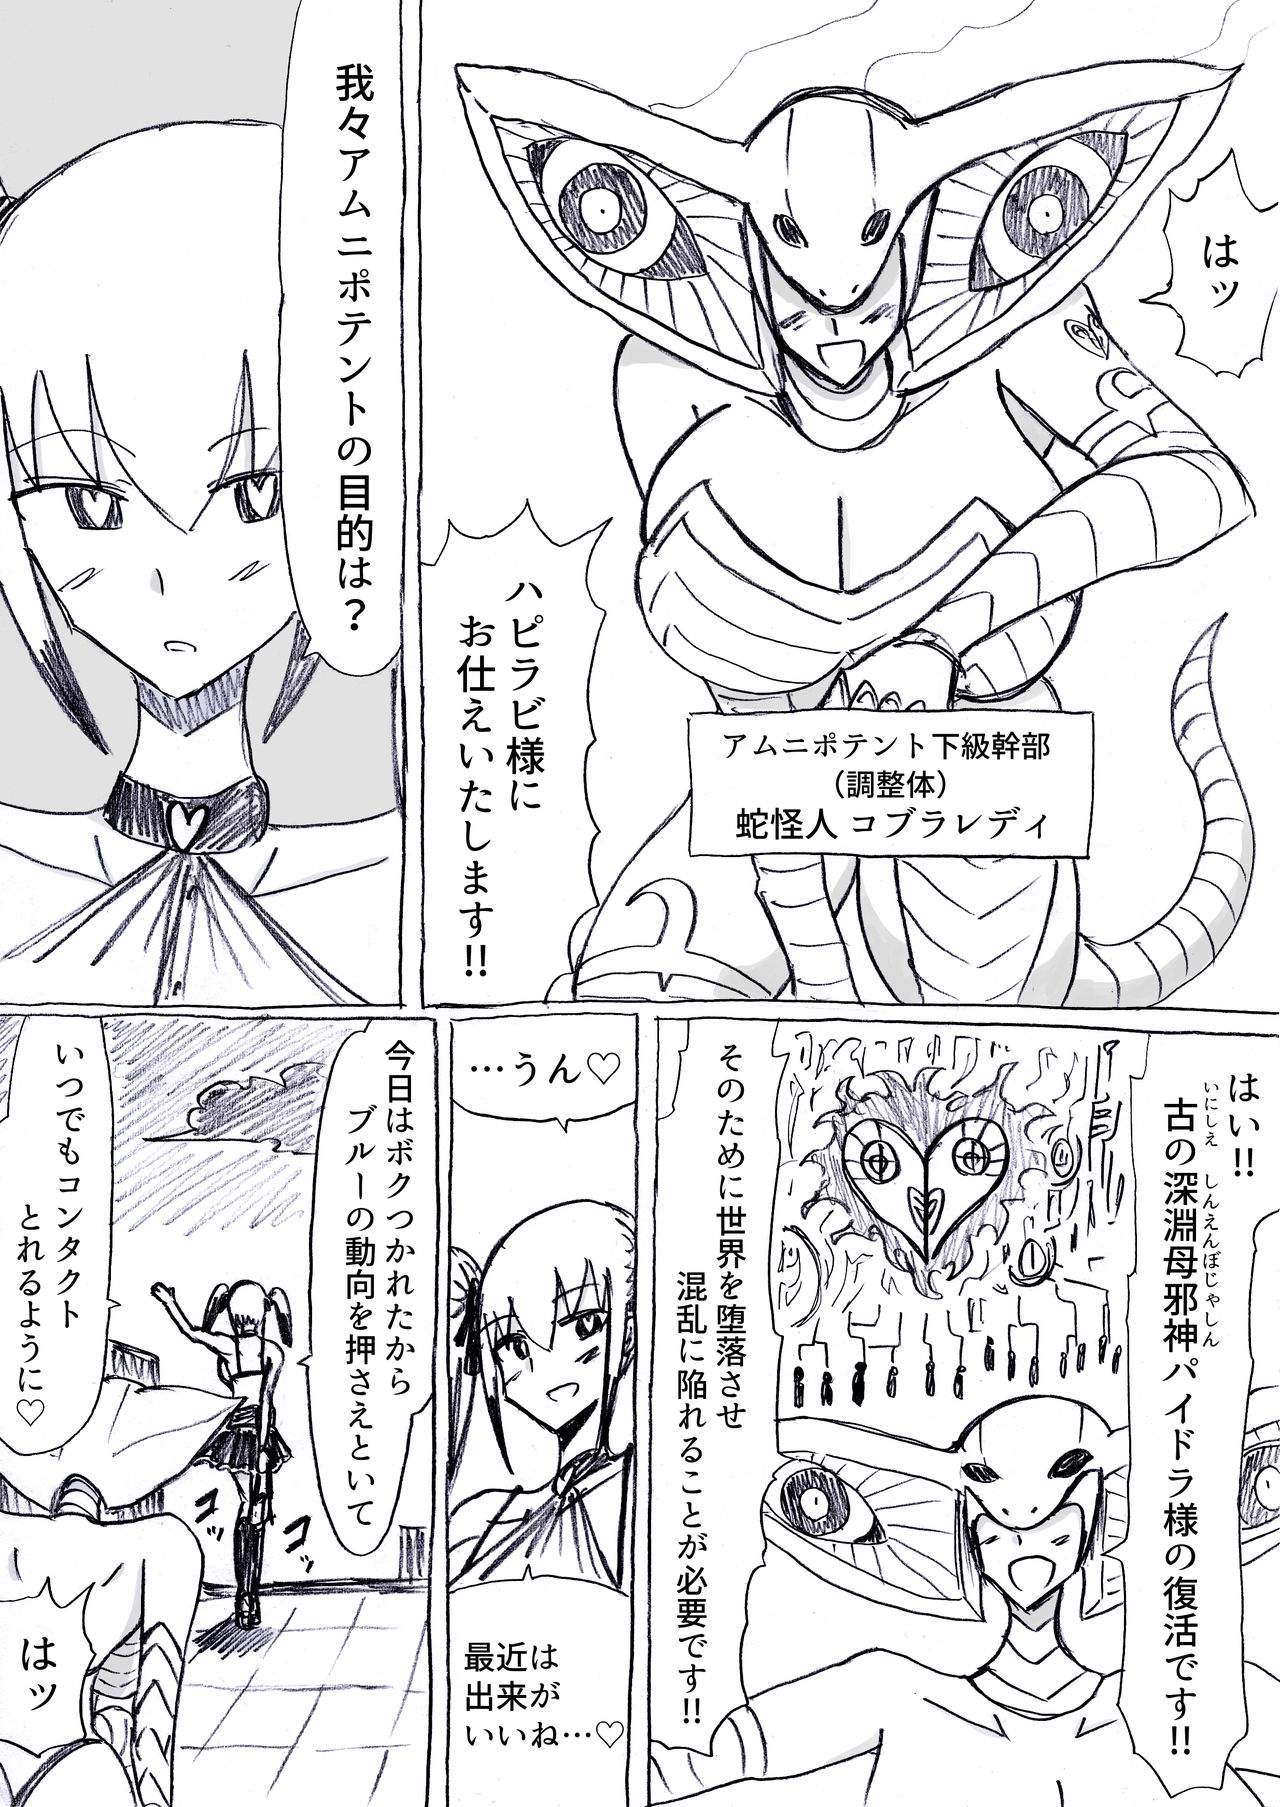 はッ
ハピラビ様に
お仕えいたします!!
アムニポテント下級幹部
（調整体）
蛇怪人 コブラレディ
我々アムニポテントの目的は？
はい!!
古の深淵母邪神パイドラ様の復活です!!
いにしえ しんえんぼじゃしん
そのために世界を堕落させ
混乱に陥れることが必要です!!
…うん♡
最近は
出来が
いいね…♡
今日はボクつかれたから
ブルーの動向を押さえといて
いつでもコンタクト
とれるように♡
コッ
コッ
はッ